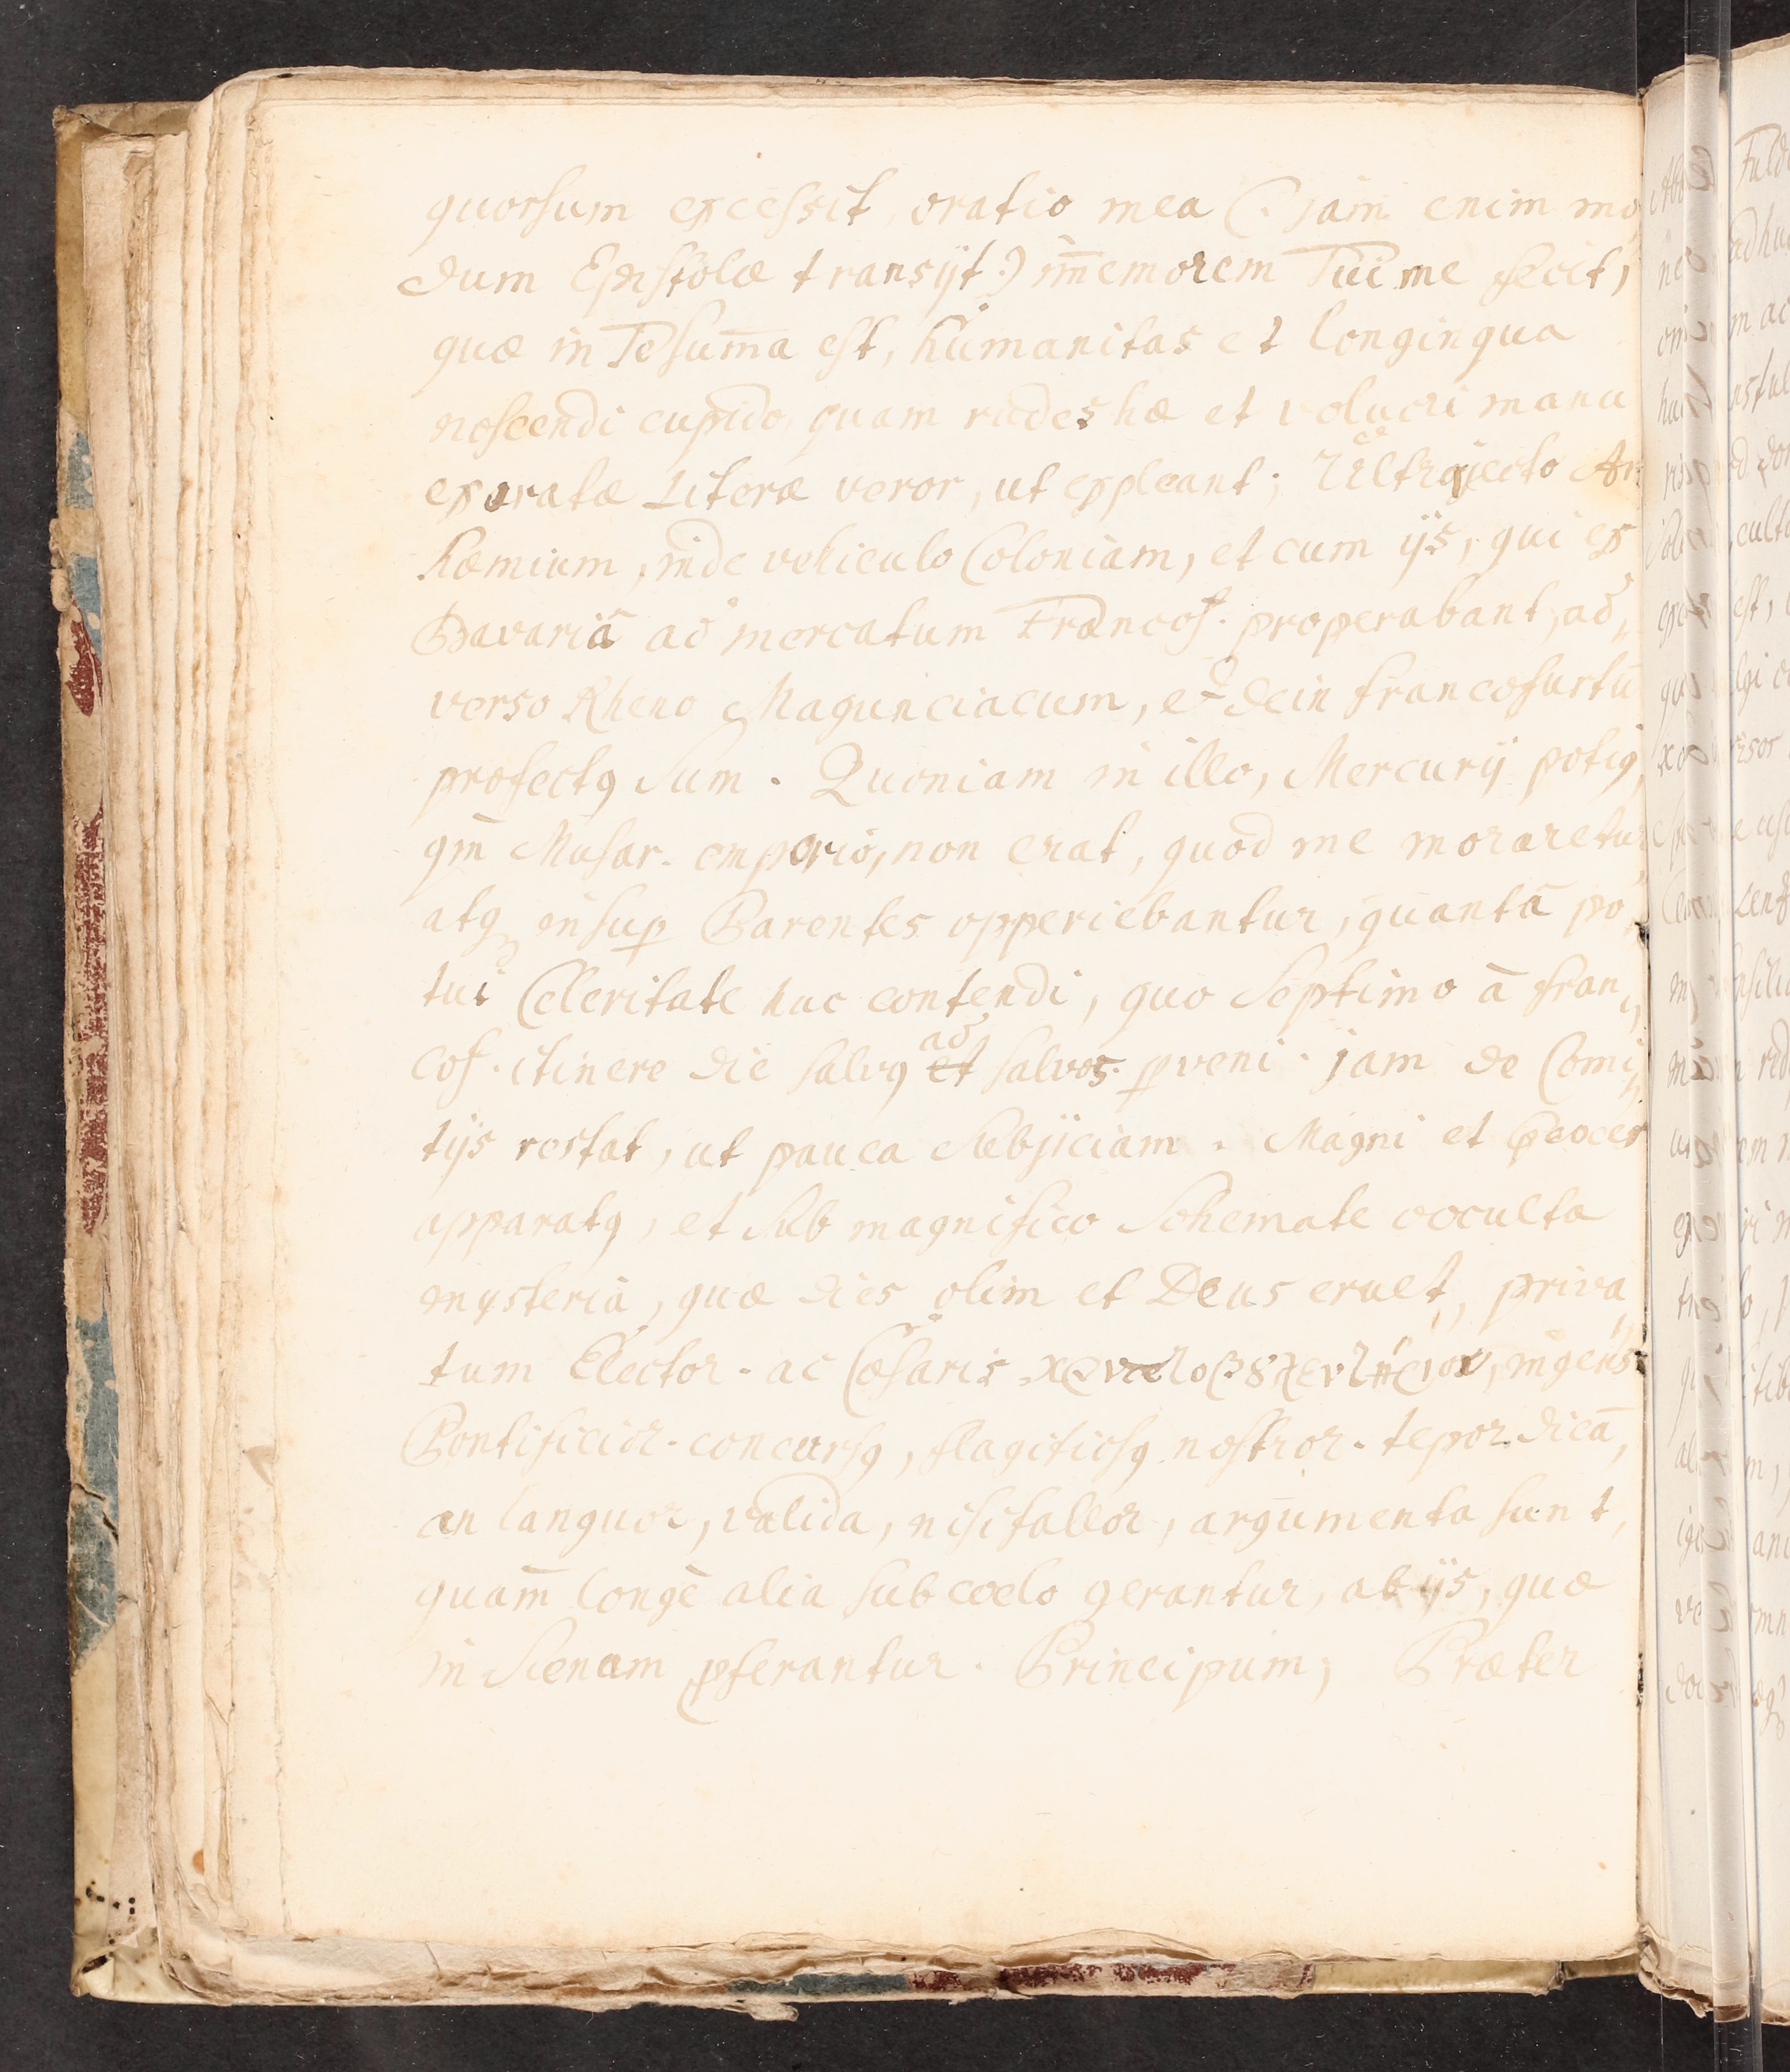 quorsum excessit, oratio mea (: jam enim mo
dum Epistolæ transijt:) im̅emorem Tui me fecit,
quæ in Te sum̅a est, humanitas et longinqua
noscendi cupido, quam rudes hæ et volucri manu
exaratæ Literæ veror, ut expleant; Ultrajecto Ar
hæmium, inde vehiculo Coloniam, et cum ijs, qui ex
Bavariâ ad mercatum Francof. properabant, ad„
verso Rheno Magunciacum, et dein francofurtū
profectꝰ sum. Quoniam in illo, Mercurij potiꝰ,
qm̅ Musar. emporio, non erat, quod me moraretur,
atqꝫ insuꝑ Parentes opperiebantur, quantâ po„
tui Celeritate huc contendi, quo septimo â fran„
cof. itinere die salvꝰ et ad salvos ꝑveni. jam de Comi„
tijs restat, ut pauca subjiciam. Magni et procer
apparatꝰ, et sub magnifico schemate occulta
mysteria, quæ dies olim et Deus eruet, priva„
tum Elector. ac Cæsaris ingens
Pontificior. concursꝰ, flagitiosꝰ nostror. tepor dicā,
an languor, valida, nisi fallor, argumenta sunt,
quam̅ longè alia sub coelo gerantur, ab ijs, quæ
in scenam ꝓferantur. Principum; Præter